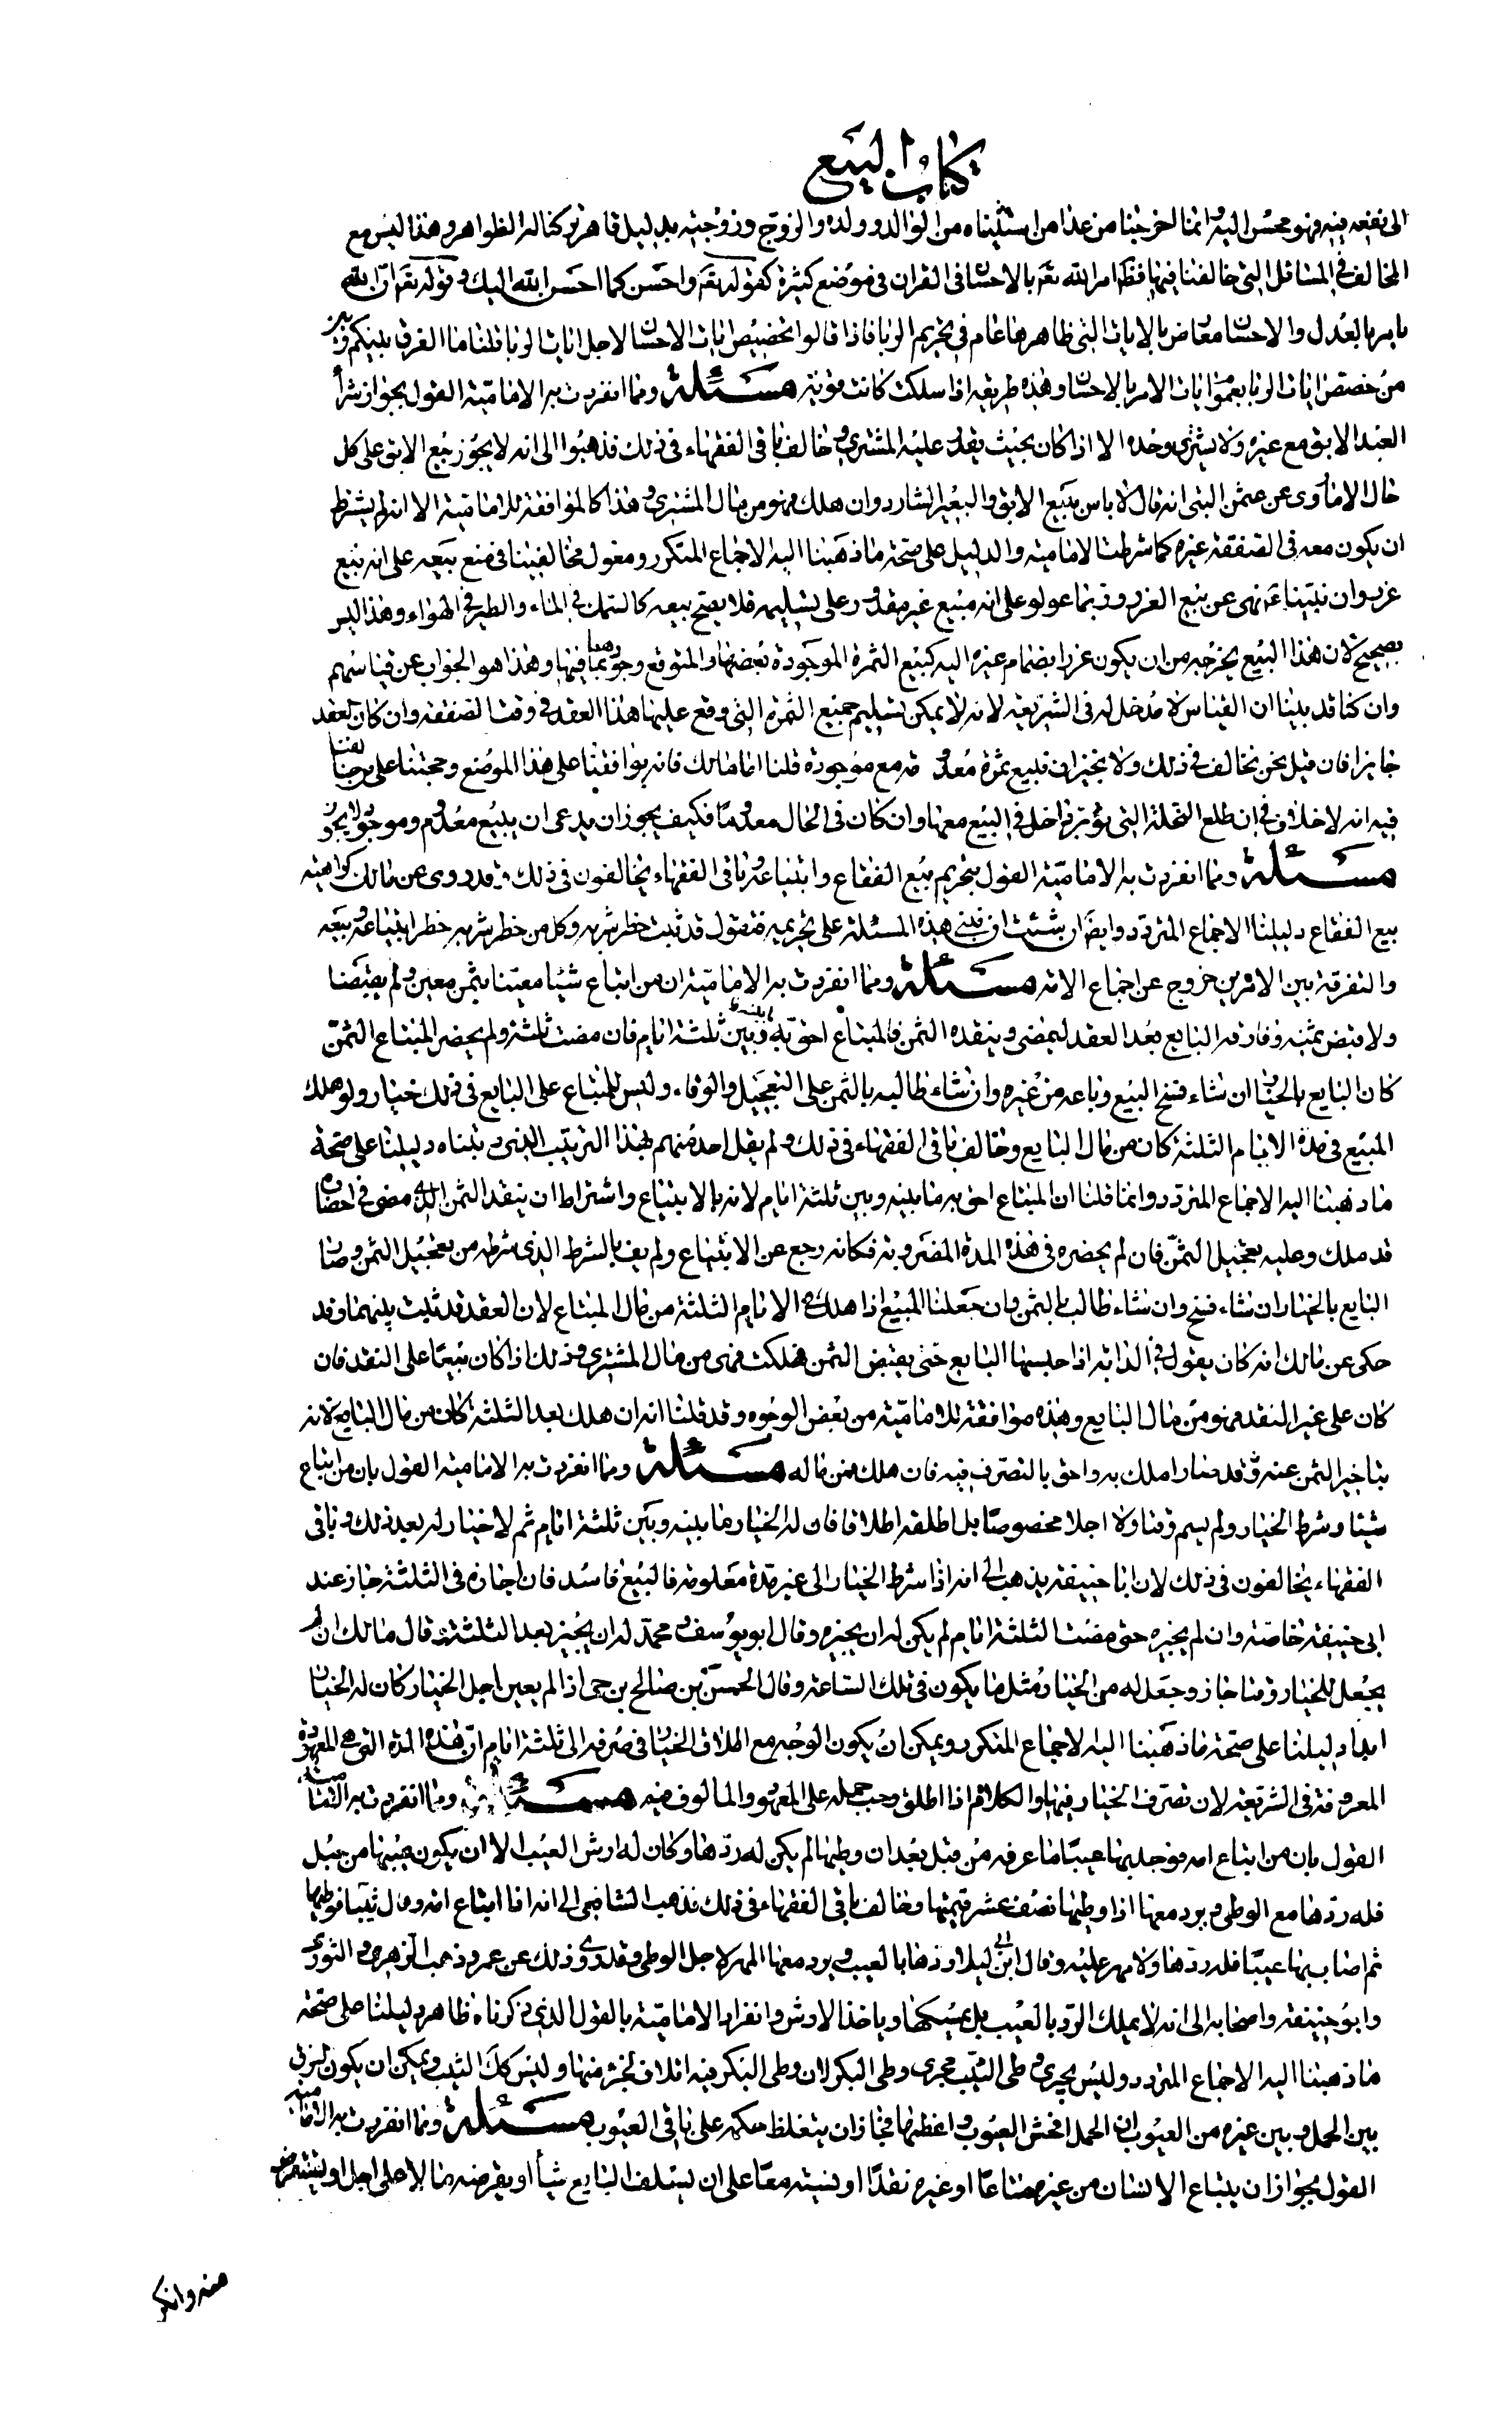 كتاب البيع
الى نفعه فيه فهو محسن اليه وانما اخرجنا من عدا من استثنيناه من الوالد وولده والزوج وزوجته بدليل قاهر تركنا له الظواهر وهذا ليس مع
المخالف في المسائل التي خالفنا فيها فظ امر الله تعٓ بالاحسان في القران في موضع كثيرة كقوله تعٓ واحسن كما احسن الله اليك وقوله تعٓ ان الله
يامر بالعدل والاحسان معارض بالايات التي ظاهرها عام في تحريم الربا فاذا قالوا نخصص ايات الاحسان لاجل ايات الربا قلنا ما الفرق بينكم وبين
من خصص ايات الربا بعموم ايات الامر بالاحسان وهذه طريقه اذا سلكت كانت قوية مسئلة ومما انفردت به الامامية القول بجواز شرأ
العبد الابق مع غيره ولا يشترى وحده الا اذا كان بحيث يقدر عليه المشترى وخالف باقى الفقهاء فى ذلك فذهبوا الى انه لا يجوز بيع الابق على كل
حال الا ما روى عن عثمن البتى انه قال لا باس ببيع الابق والبعير الشارد وان هلك فهو من مال المشترى وهذا كالموافقة للامامية الا انه لم يشترط
ان يكون معه فى الصفقة غيره كما شرطت الامامية والدليل على صحة ما ذهبنا اليه الاجماع المتكرر ومعول مخالفينا فى منع بيعه على انه بيع
غرر وان نبينا عٓ نهى عن بيع الغرر وربما عولو على انه مبيع غير مقدور على تسليمه فلا يصح بيعه كالسمك في الماء والطير في الهواء وهذا ليس
بصحيح لان هذا البيع يخرجه من ان يكون غررا بضمام غيره اليه كبيع الثمرة الموجودة بعضها والمتوقع وجود باقيها وهذا هو الجواب عن قياسهم
وان كنا قد بينا ان القياس لا مدخل له فى الشريعة لانه لا يمكن تسليم جميع الثمرة التى وقع عليها هذا العقد فى وقت الصفقه وان كان العقد
جايزا فان قيل نحن نخالف فى ذلك ولا نجيز ان نبيع ثمرة معدومة مع موجودة قلنا اما مالك فانه يوافقنا على هذا الموضع وحجتنا على من خالفنا
فيه انه لا خلاف في ان طلع النخلة التى لم تؤبر داخل في البيع معها وان كان فى الحال معدوما فكيف يجوز ان يدعى ان بيع معدوم وموجود لا يجوز
مسئلة ومما انفردت به الامامية القول بتحريم بيع الفقاع وابتياعه وباقى الفقهاء يخالفون فى ذلك وقد روى عن مالك كراهية
بيع الفقاع دليلنا الاجماع المتردد وايضا ان شئت ان نبنى هذه المسئلة على تحريمه فنقول قد ثبت حظر شربه وكل من حظر شربه حظر ابتياعه وبيعه
والتفرقة بين الامرين خروج عن اجماع الامة مسئلة ومما انفردت به الامامية ان من ابتاع شيئا معينا بثمن معين ولم يقبضنا
ولا قبض ثمنه وفارقه البايع بعد العقد ليمضى وينقده الثمن فالمبتاع احق به ما بينه وبين ثلثة ايام فان مضت ثلثة ولم يحضر المبتاع الثمن
كان البايع بالخيار ان شاء فسخ البيع وباعه من غيره وان شاء طالبه بالثمن على التعجيل والوفاء وليس للمبتاع على البايع فى ذلك خيار ولو هلك
المبيع فى مدة الايام الثلثة كان من مال البايع وخالف باقى الفقهاء فى ذلك ولم يقل احد منهم بهذا الترتيب الذى رتبناه دليلنا على صحة
ما ذهبنا اليه الاجماع المتردد وانما قلنا ان المبتاع احق به ما بينه وبين ثلثة ايام لانه بالابتياع واشتراط ان ينقد الثمن الذى مضى في احضاره
قد ملك وعليه تعجيل الثمن فان لم يحضره فى هذه المدة المضروبة فكانه رجع عن الابتياع ولم يف بالشرط الذى شرطه من تعجيل الثمن وصار
البايع بالخيار ان شاء فسخ وان شاء طالب بالثمن وان جعلنا المبيع اذا هلك في الايام الثلثة من مال المبتاع لان العقد قد ثبت بينهما وقد
حكى عن مالك انه كان يقول في الدابة اذا حبسها البايع حتى يقبض الثمن فهلكت فهى من مال المشترى وذلك اذا كان بيعا على النقد فان
كان على غير النقد فهو من مال البايع وهذه موافقة للامامية من بعض الوجوه وقد قلنا انه ان هلك بعد الثلثة كان من مال البايع لانه
بتاخير الثمن عنه قد صار املك به واحق بالتصرف فيه فان هلك فمن ماله مسئلة ومما انفردت به الامامية القول بان من ابتاع
شيئا وشرط الخيار ولم يسم وقتا ولا اجلا مخصوصا بل اطلقه اطلاقا فان له الخيار ما بينه وبين ثلثة ايام ثم لا خيار له بعد ذلك وباقى
الفقهاء يخالفون فى ذلك لان ابا حنيفة يذهب الى انه اذا شرط الخيار الى غير مدة معلومة فالبيع فاسد فان اجازه فى الثلثة جاز عند
ابى حنيفة خاصة وان لم يجزه حتى مضت الثلثة ايام لم يكن له ان يجيزه وقال ابو يوسف ومحمد له ان يجيز بعد الثلثة وقال مالك ان لم
يجعل للخيار وقتا جاز وجعل له من الخيار مثل ما يكون فى تلك الساعة وقال الحسن بن صالح بن حى اذا لم يعين اجل الخيار كان له الخيار
ابدا دليلنا على صحة ما ذهبنا اليه الاجماع المتكرر ويمكن ان يكون الوجه مع اطلاق الخيار فى صرفه الى ثلثة ايام ان هذه المدة التى هى المعهودة
المعروفة فى الشريعة لان تصرف الخيار فيها والكلام اذا اطلق وجب حمله على المعهود والمالوف فيه مسئلة ومما انفردت به الامامية
القول بان من ابتاع امة فوجد بها عيبا ما عرفه من قبل بعد ان وطيها لم يكن له ردها وكان له ارش العيب الا ان يكون عيبها من حبل
فله ردها مع الوطى ويرد معها اذا وطيها نصف عشر قيمتها وخالف باقى الفقهاء فى ذلك فذهب الشافعى الى انه اذا ابتاع امة ثيبا فوطيها
ثم اصاب بها عيبا فله ردها ولا مهر عليه وقال ابن ابى ليلا يردها بالعيب ويرد معها المهر لاجل الوطى وقد روى ذلك عن عمر وذهب الزهرى والثورى
وابو حنيفة واصحابه الى انه لا يملك الرد بالعيب بل يمسكها وياخذ الارش وانفراد الامامية بالقول الذى ذكرناه ظاهر دليلنا على صحة
ما ذهبنا اليه الاجماع المتردد وليس يجرى وطى الثيب مجرى وطى البكر لان وطى البكر فيه اتلاف لجزء منها وليس كك الثيب ويمكن ان يكون الفرق
بين الحمل وبين غيره من العيوب ان الحمل افحش العيوب واعظمها فجاز ان يتغلظ حكمه على باقى العيوب مسئلة ومما انفردت به الامامية
القول بجواز ان يبتاع الانسان من غيره متاعا او غيره نقدا او نسيئة معا على ان يستلف البايع شيأ او يقرضه مالا على اجل او يستقرض
منه وانكر